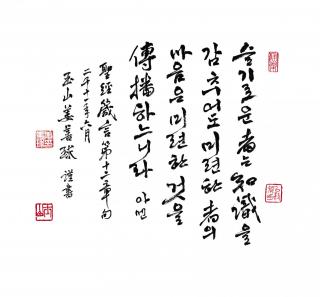 슬기로운 者는 知識을
감추어도 미련한 者의
마음은 미련한 것을
傳播하느니라 아멘
聖經 箴言 第十二章句
二千十一年 六月
玉山 姜 謹書